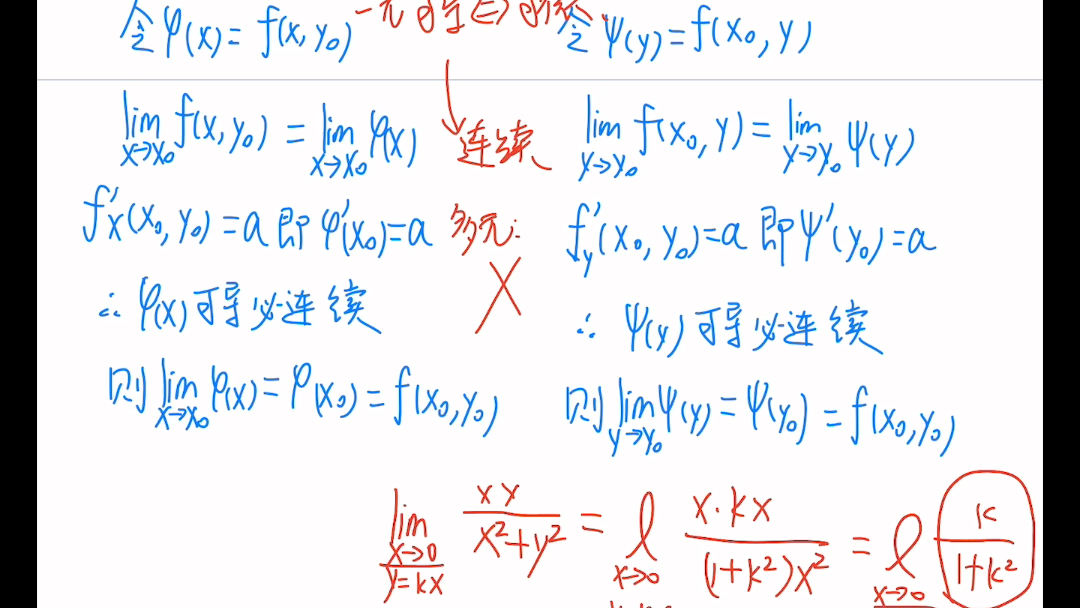 令φ(x)=f(x,y₀) 一元可导⇔可微 令ψ(y)=f(x₀,y)
lim_{x→x₀} f(x,y₀)=lim_{x→x₀} φ(x) 连续 lim_{y→y₀} f(x₀,y)=lim_{y→y₀} ψ(y)
f'x(x₀,y₀)=a即φ'(x₀)=a 多元: f'y(x₀,y₀)=a即ψ'(y₀)=a
∴ φ(x)可导必连续 X ∴ ψ(y)可导必连续
则lim_{x→x₀} φ(x)=φ(x₀)=f(x₀,y₀) 则lim_{y→y₀} ψ(y)=ψ(y₀)=f(x₀,y₀)
lim_{x→0, y=kx} xy/(x²+y²) = l_{x→0} x·kx/((1+k²)x²) = l_{x→0} k/(1+k²)